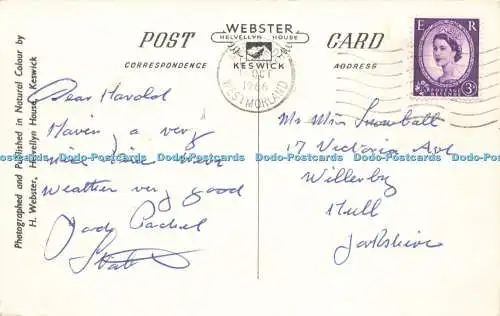 POST
WEBSTER
HELVELLYN HOUSE
KESWICK
CARD
CORRESPONDENCE
ADDRESS
E R
POSTAGE REVENUE
3D
OCT
1966
WESTMORLAND
Photographed and Published in Natural Colour by
H. Webster, Helvellyn House, Keswick
Dear Harold
Havin a very
nice time here
weather very good
Mr Mrs Snowball
17 Victoria Ave
Willerby
Hull
Yorkshire
Dodo-Postcards Dodo-Postcards Dodo-Postcards Dodo-Postcards Dodo-Postcards